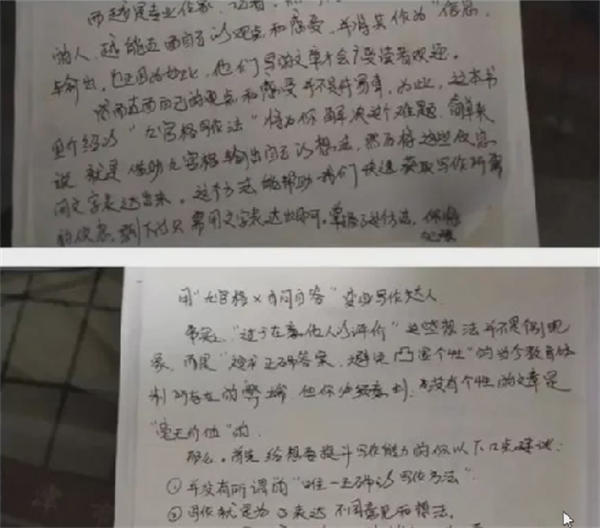 而越是专业作家、记者
的人，越能直面自己的观点和感受，并将其作为“信息”
与输出，也正因为如此，他们写的文章才会广受读者欢迎。
然而直面自己的观点和感受并不是件易事，为此，这本书
里介绍的“九宫格写作法”将为你解决这个难题。简单来
说，就是借助九宫格输出自己的想法，然后将这些信息
用文字表达出来。这个方法能帮助我们快速获取写作所需
的信息，剩下的只需用文字表达出来即可。掌握了这个方法，你将
用“九宫格×自问自答”变身写作达人
事实上，“过于在意他人的评价”这些想法并不是个别现
象，而是“追求正确答案，避免凸显个性”的当今教育体
制所存在的弊端，但你必须意识到，没有个性的文章是
“毫无价值”的。
那么，首先给想要提升写作能力的你以下几点建议：
①并没有所谓的“唯一正确的写作方法”
②写作就是为了表达不同意见和想法。